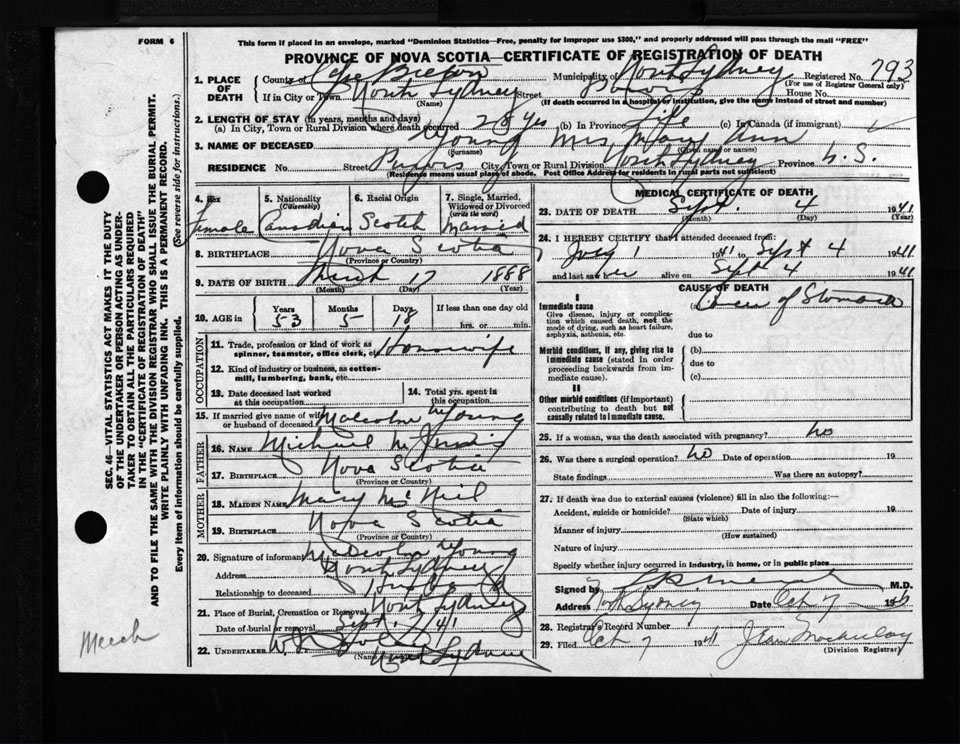 FORM 6
This form if placed in an envelope, marked "Dominion Statistics—Free, penalty for improper use $300," and properly addressed will pass through the mail "FREE"
PROVINCE OF NOVA SCOTIA—CERTIFICATE OF REGISTRATION OF DEATH
1. PLACE OF DEATH County of Cape Breton Municipality of North Sydney Registered No. 793
(For use of Registrar General only)
If in City or Town North Sydney Street House No.
(Name) (If death occurred in a hospital or institution, give the name instead of street and number)
2. LENGTH OF STAY (in years, months and days)
(a) In City, Town or Rural Division where death occurred 28 yrs (b) In Province life (c) In Canada (if immigrant)
3. NAME OF DECEASED Young Mrs Mary Ann
(Surname) (Given name or names)
RESIDENCE No. Street City, Town or Rural Division North Sydney Province N.S.
(Residence means usual place of abode. Post Office Address for residents in rural parts not sufficient)
4. Sex Female
5. Nationality (Citizenship) Canadian
6. Racial Origin Scotch
7. Single, Married, Widowed or Divorced (write the word) Married
8. BIRTHPLACE Nova Scotia
(Province or Country)
9. DATE OF BIRTH March 17 1888
(Month) (Day) (Year)
10. AGE in Years 53 Months 5 Days 18 If less than one day old hrs. or min.
OCCUPATION
11. Trade, profession or kind of work as spinner, teamster, office clerk, etc. Housewife
12. Kind of industry or business, as cotton-mill, lumbering, bank, etc.
13. Date deceased last worked at this occupation
14. Total yrs. spent in this occupation
15. If married give name of wife or husband of deceased Malcolm Young
FATHER
16. NAME Michael
17. BIRTHPLACE Nova Scotia
(Province or Country)
MOTHER
18. MAIDEN NAME Mary McNeil
19. BIRTHPLACE Nova Scotia
(Province or Country)
20. Signature of informant Malcolm Young
Address North Sydney
Relationship to deceased Husband
21. Place of Burial, Cremation or Removal North Sydney
Date of burial or removal Sept. 7/41
22. UNDERTAKER
(Name) North Sydney
MEDICAL CERTIFICATE OF DEATH
23. DATE OF DEATH Sept. 4 1941
(Month) (Day) (Year)
24. I HEREBY CERTIFY that I attended deceased from:
July 1 1941 to Sept 4 1941
and last saw her alive on Sept 4 1941
CAUSE OF DEATH
I
Immediate cause (a) Cancer of Stomach
Give disease, injury or complication which caused death, not the mode of dying, such as heart failure, asphyxia, asthenia, etc.
due to
Morbid conditions, if any, giving rise to immediate cause (stated in order proceeding backwards from immediate cause).
(b)
due to
(c)
II
Other morbid conditions (if important) contributing to death but not causally related to immediate cause.
25. If a woman, was the death associated with pregnancy? no
26. Was there a surgical operation? no Date of operation 19
State findings Was there an autopsy?
27. If death was due to external causes (violence) fill in also the following:—
Accident, suicide or homicide? Date of injury 19
(State which)
Manner of injury
(How sustained)
Nature of injury
Specify whether injury occurred in industry, in home, or in public place
Signed by M.D.
Address North Sydney Date Oct 7 19
28. Registrar's Record Number
29. Filed Oct 7 1941 Jean
(Division Registrar)
SEC. 46—VITAL STATISTICS ACT MAKES IT THE DUTY
OF THE UNDERTAKER OR PERSON ACTING AS UNDER-
TAKER TO OBTAIN ALL THE PARTICULARS REQUIRED
IN THE "CERTIFICATE OF REGISTRATION OF DEATH"
AND TO FILE THE SAME WITH THE DIVISION REGISTRAR WHO SHALL ISSUE THE BURIAL PERMIT.
WRITE PLAINLY WITH UNFADING INK. THIS IS A PERMANENT RECORD.
Every item of information should be carefully supplied. (See reverse side for instructions.)